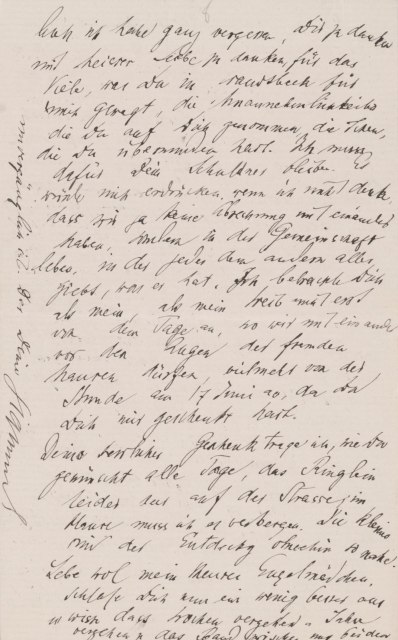 ich habe ganz vergessen, Dir zu danken
mit heisser Liebe zu danken, für das
Viele, was Du in Wandsbeck für
mich gewagt, die Unannehmlichkeiten
die Du auf Dich genommen, die
die Du überwunden hast. Ich muss
dafür Dein Schuldner bleiben. Es
würde mich erdrücken, wenn ich nicht denke,
dass wir ja keine Abrechnung mit einander
haben, sondern in der Gemeinschaft
leben, in der jeder dem andern alles
giebt, was er hat. Ich betrachte Dich
als mein, als mein Weib nicht erst
von dem Tage an, wo wir mit einander
vor den Augen der fremden
hausen dürfen, vielmehr von der
Stunde am 17 Juni an, da Du
Dich mir geschenkt hast.
Deine herrliches Geschenk trage ich, wie Du
gewünscht alle Tage, das Ringlein
leider nur auf der Strasse, im
Hause muss ich es verbergen. Die kleins
sind der Entdeckg ohnehin so nahe.
Lebe wol mein theures Engelmädchen,
schlafe Dich nun ein wenig besser aus
dass Wochen vergehen u. Jahre
vergehen u das Band zwischen uns beiden
unvergänglich ist. Dein
Sigmund